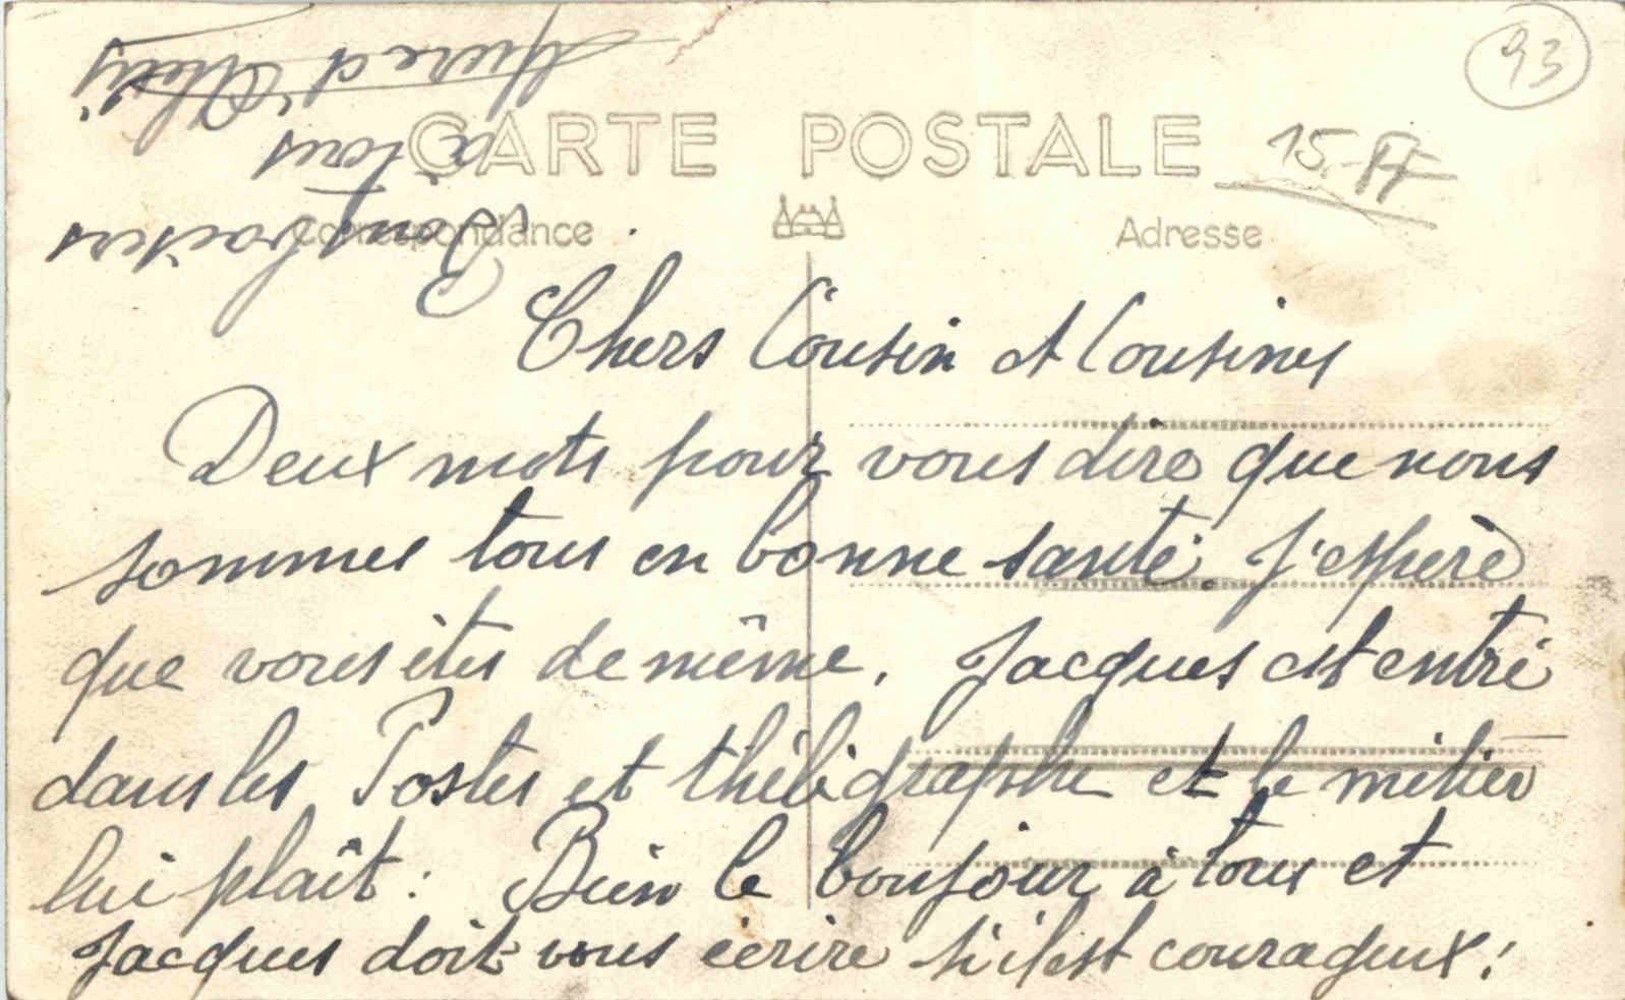 93
CARTE POSTALE
15 FF
Correspondance
Adresse
Chers Cousin et Cousines
Deux mots pour vous dire que nous
sommes tous en bonne santé. J'espère
que vous êtes de même. Jacques est entré
dans les Postes et théligraphe et le métier
lui plaît : Bien le bonjour à tous et
Jacques doit vous écrire s'il est courageux !
Bons baisers
à tous